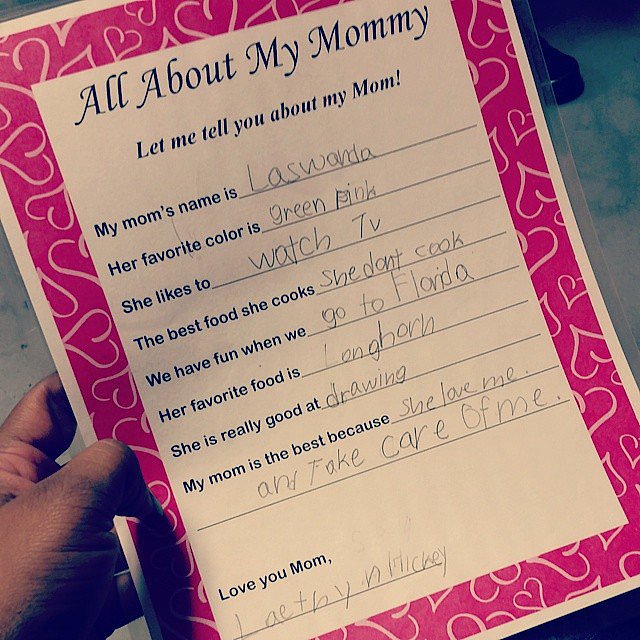 All About My Mommy
Let me tell you about my Mom!
My mom's name is Laswanda
Her favorite color is green Pink
She likes to watch Tv
The best food she cooks She dont cook
We have fun when we go to Florida
Her favorite food is Longhorn
She is really good at drawing
My mom is the best because She love me.
and Take care Of me.
Love you Mom,
Hickey